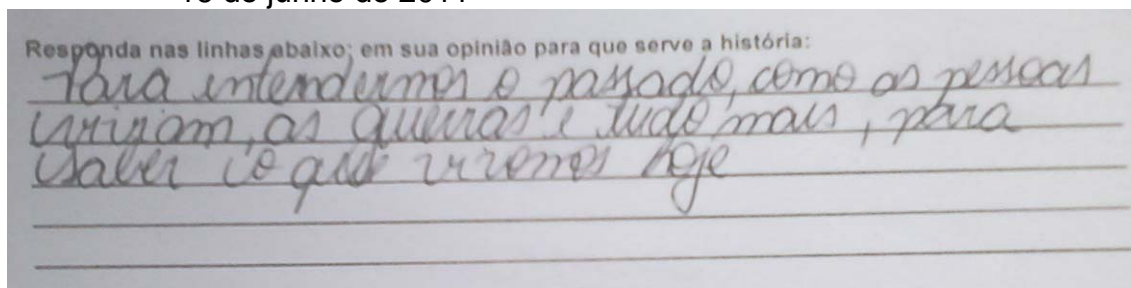 Responda nas linhas abaixo; em sua opinião para que serve a história:
Para intendermos o passado, como as pessoas
viviam, as guerras e tudo mais, para
saber o que vivemos hoje